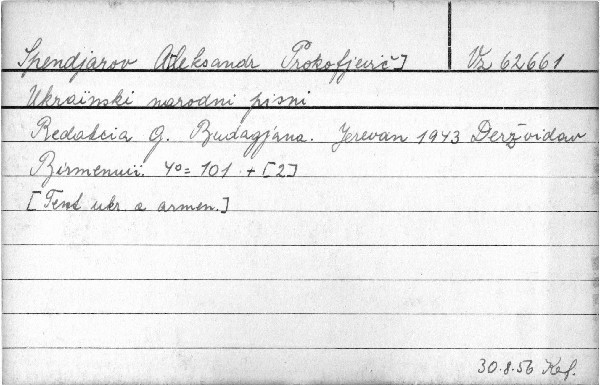 Spendjarov A[leksandr Prokofjevič] Vz 62661
Ukraïnski narodni pisni
Redakcia G. Budagjana. Jerevan 1943 Deržvidav
Birmenuii. 4° = 101 + [2]
[Text ukr. a armen.]
30.8.56 Kef.